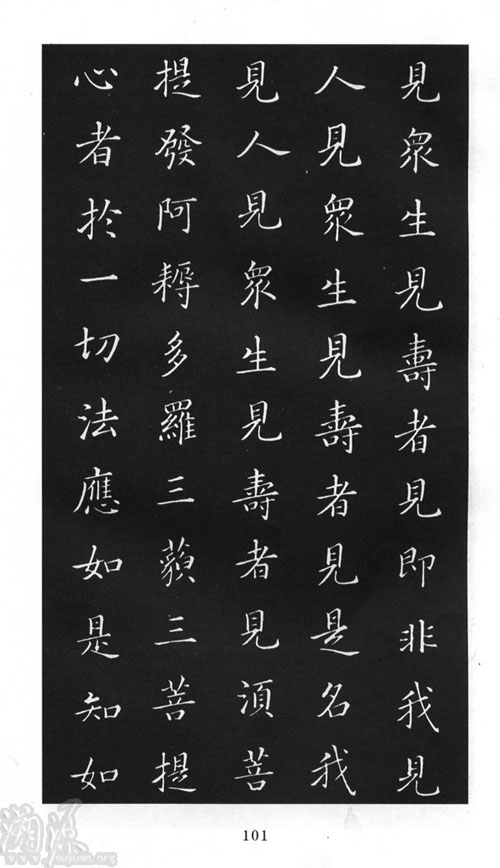 見眾生見壽者見即非我見
人見眾生見壽者見是名我
見人見眾生見壽者見湏菩
提發阿耨多羅三藐三菩提
心者於一切法應如是知如
101
溯源
www.suyuan.org